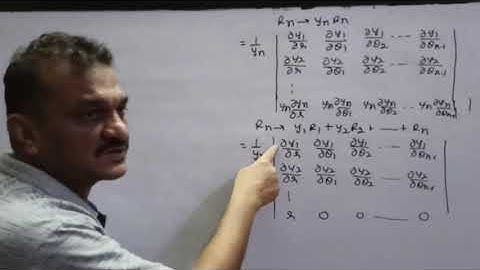 Rn → yn Rn
= 1/yn | ∂y1/∂r ∂y1/∂θ1 ∂y1/∂θ2 ---- ∂y1/∂θn-1 |
∂y2/∂r ∂y2/∂θ1 ∂y2/∂θ2 ---- ∂y2/∂θn-1
⋮
yn ∂yn/∂r yn ∂yn/∂θ1 yn ∂yn/∂θ2 -- yn ∂yn/∂θn-1
Rn → y1 R1 + y2 R2 + ---- + Rn
= 1/yn | ∂y1/∂r ∂y1/∂θ1 ∂y1/∂θ2 ---- ∂y1/∂θn-1 |
∂y2/∂r ∂y2/∂θ1 ∂y2/∂θ2 ---- ∂y2/∂θn-1
⋮
r 0 0 ---- 0